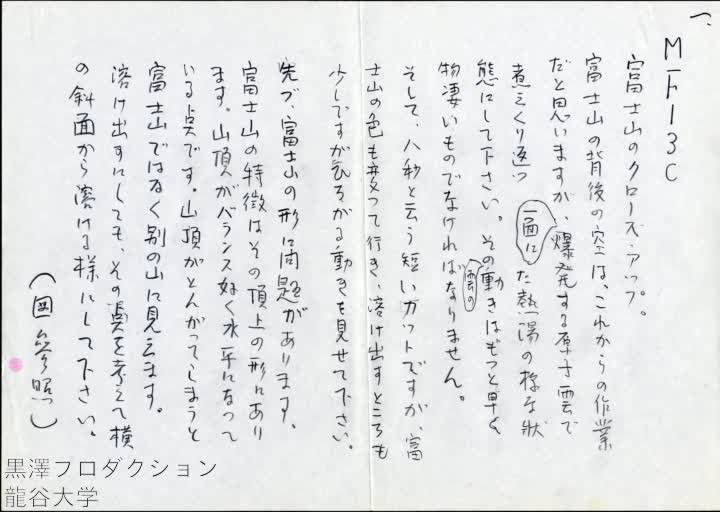 一、
MF13C
富士山のクローズ・アップ。
富士山の背後の空は、これからの作業
だと思いますが、爆発する原子雲で
一面に
煮えくり返つた熱湯の様な状
態にして下さい。その動きはもつと早く
雲の
物凄いものでなければなりません。
そして、八秒と云う短いカツトですが、富
士山の色も変つて行き、溶け出すところも
少しですが気ろがる動きも見せて下さい。
先づ、富士山の形に問題があります。
富士山の特徴はその頂上の形にあり
ます。山頂がバランス好く水平になつて
いる点です。山頂がとんがってしまうと
富士山ではなく別の山に見えます。
溶け出すにしても、その点を考えて横
の斜面から溶ける様にして下さい。
(図参照)
黒澤プロダクション
龍谷大学